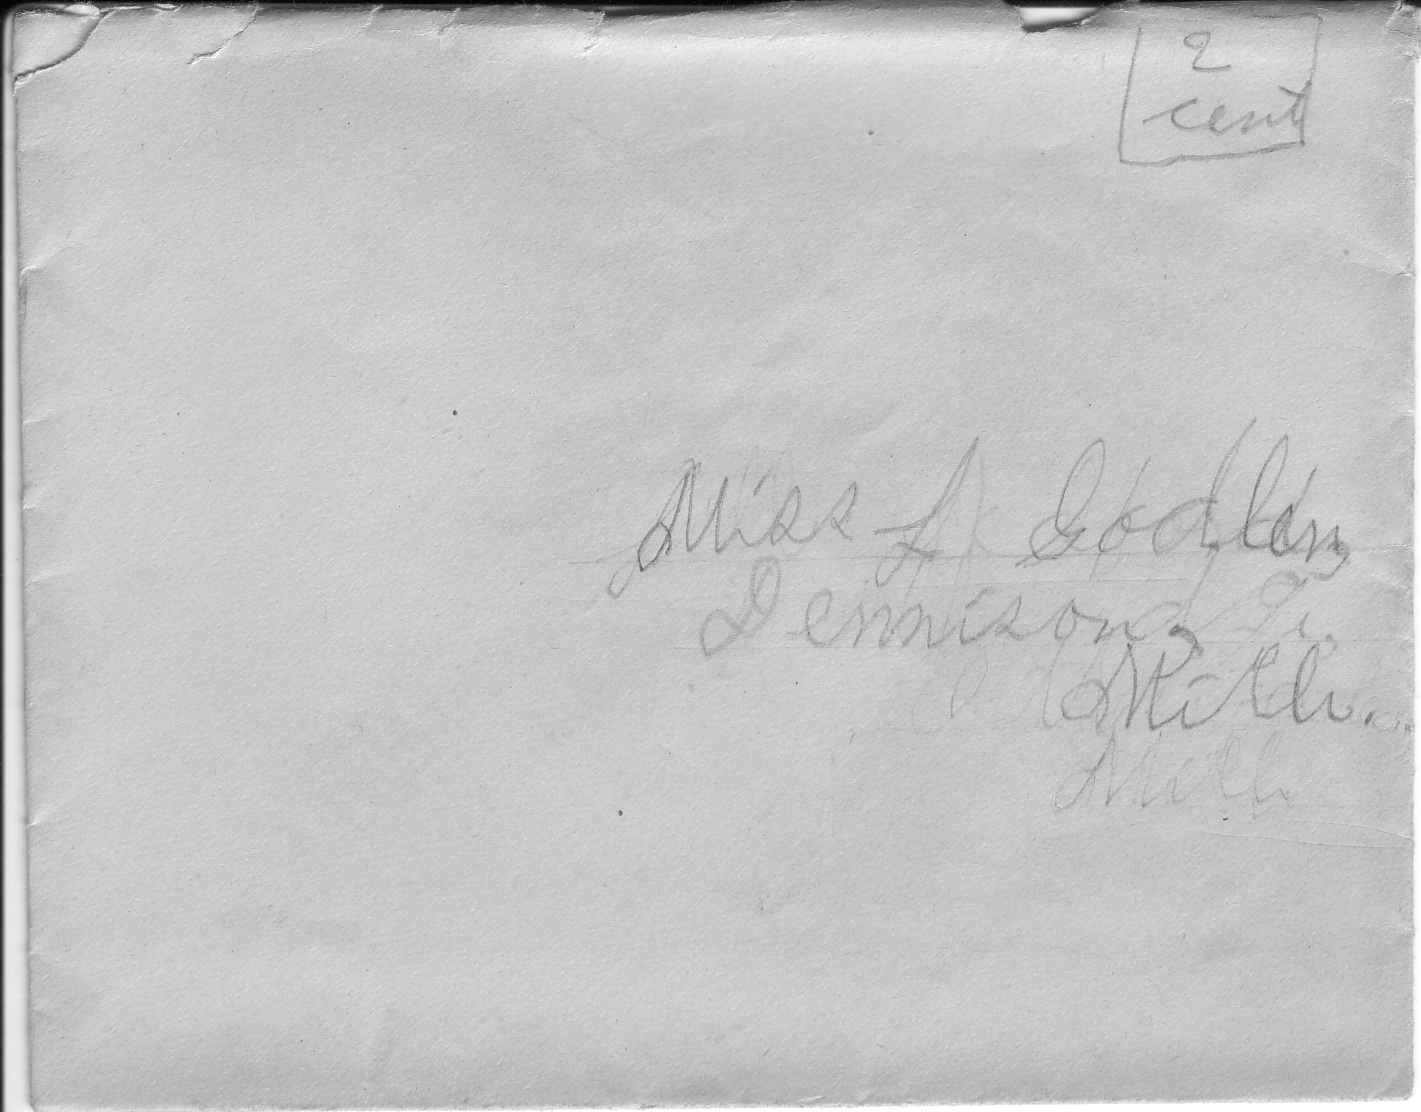 2
cent
Miss L Godkin
Dennison,
Mich.
Mich